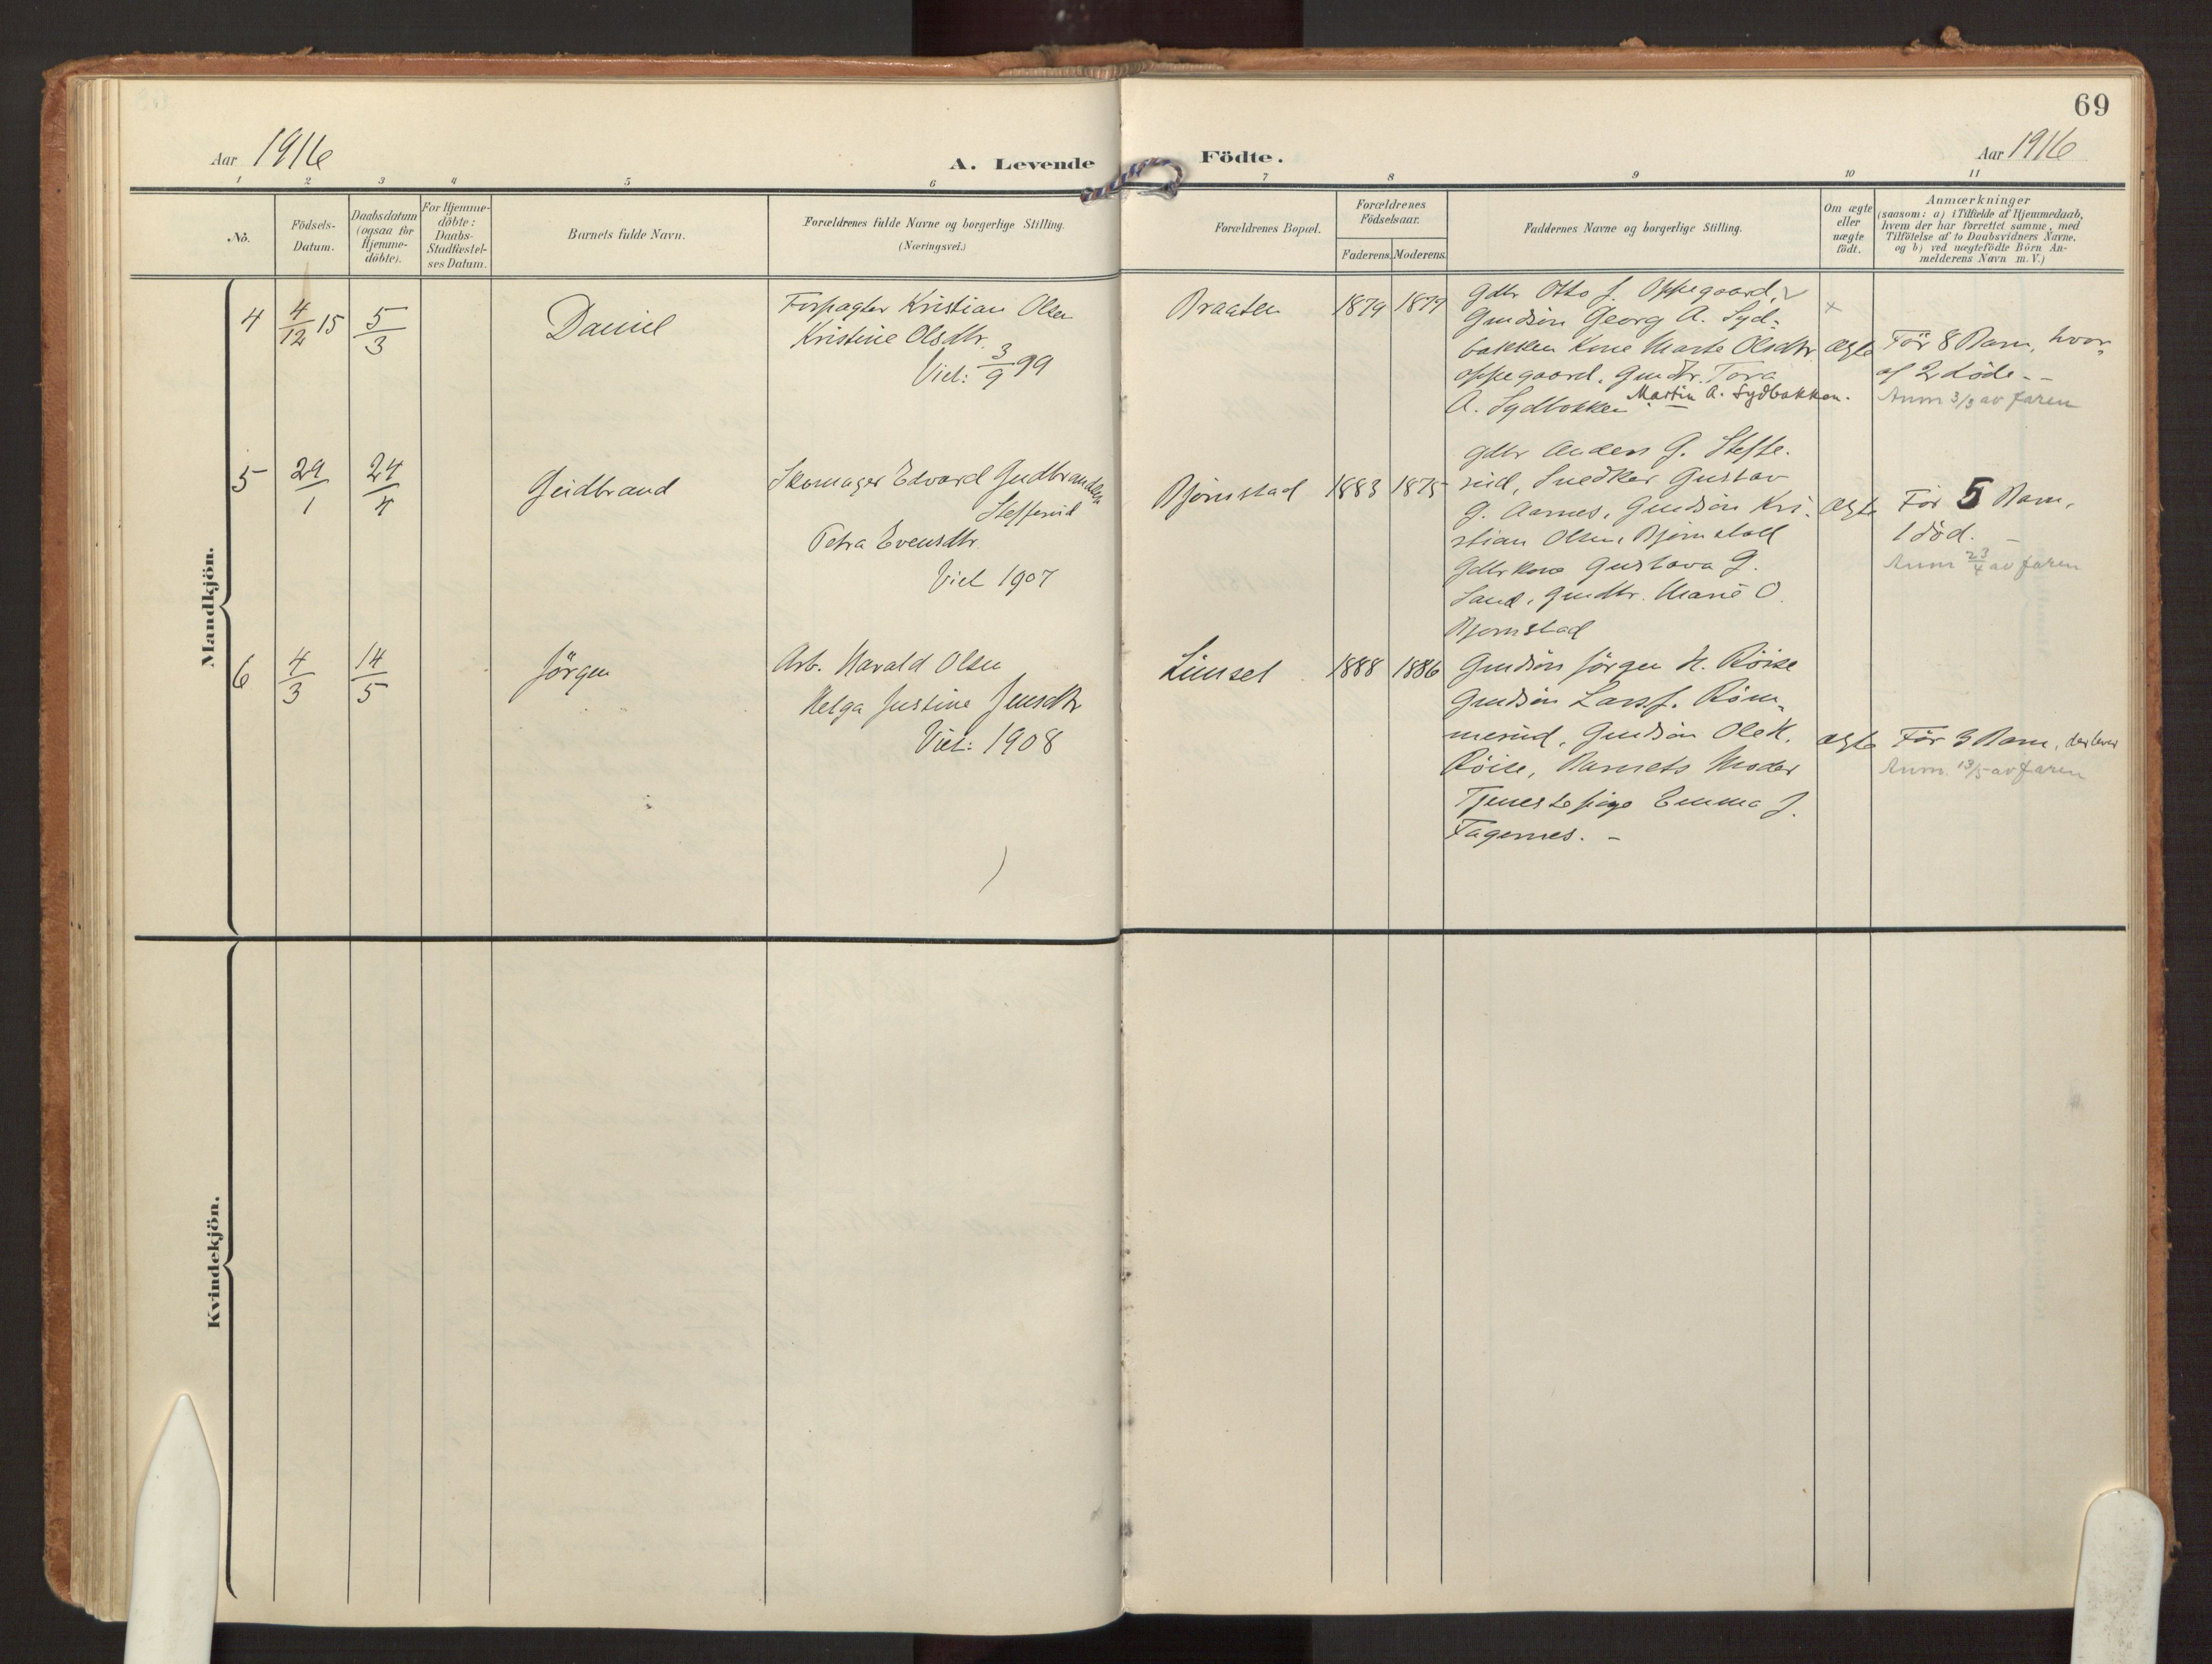 69
Aar 1916
A. Levende Födte.
Aar 1916
1 2 3 4 5 6 7 8 9 10 11
No.
Födsels-
Datum.
Daabsdatum
(ogsaa for
Hjemme-
döbte).
For Hjemme-
döbte:
Daabs-
Stadfæstel-
ses Datum.
Barnets fulde Navn.
Forældrenes fulde Navne og borgerlige Stilling.
(Næringsvei.)
Forældrenes Bopæl.
Forældrenes
Födselsaar.
Faderens. Moderens.
Faddernes Navne og borgerlige Stilling.
Om ægte
eller
uægte
födt.
Anmærkninger
(saasom: a) i Tilfælde af Hjemmedaab,
hvem der har forrettet samme, med
Tilföielse af to Daabsvidners Navne,
og b) ved uægtefödte Börn An-
melderens Navn m. V.)
Mandkjön.
4
4/12 15
5/3
Daniel
Forpagter Kristian Olsen
Kristine Olsdtr.
Viet: 3/9 99
Braaten
1879
1879
Gdbr Otto J. Oppegaard,
Gmdsön Georg A. Syd-
bakken Kone Marte Olsdtr.
Oppegaard. Gmdtr. Tora
A. Sydbakken Martin A. Sydbakken.
×
ægte
För 8 Barn, hvor-
af 2 döde --
Anm 3/3 av faren
5
29/1
24/4
Gudbrand
Skomager Edvard Gudbrandsen
Stefferud
Petra Evensdtr
Viet 1907
Bjørnstad
1883
1875
Gdbr Anders G. Steffe-
rud, Snedker Gustav
G. Aarnes, Gmdsön Kri-
stian Olsen, Bjørnstad
Gdbrkone Gustava G.
Sand, Gmdtr. Marie O.
Bjornstad
ægte
För 5 Barn,
1 död. -
Anm 23/4 av faren
6
4/3
14/5
Jörgen
Arb. Harald Olsen
Helga Justine Jensdtr
Viet: 1908
Linset
1888
1886
Gmdsön Jörgen K. Röise
Gmdsön Lars J. Röm-
merud, Gmdsön Ole K.
Röise, Barnets Moder
Tjenestepige Emma J.
Fagernes. -
ægte
För 3 Barn, der lever
Anm. 13/5 av faren
Kvindekjön.